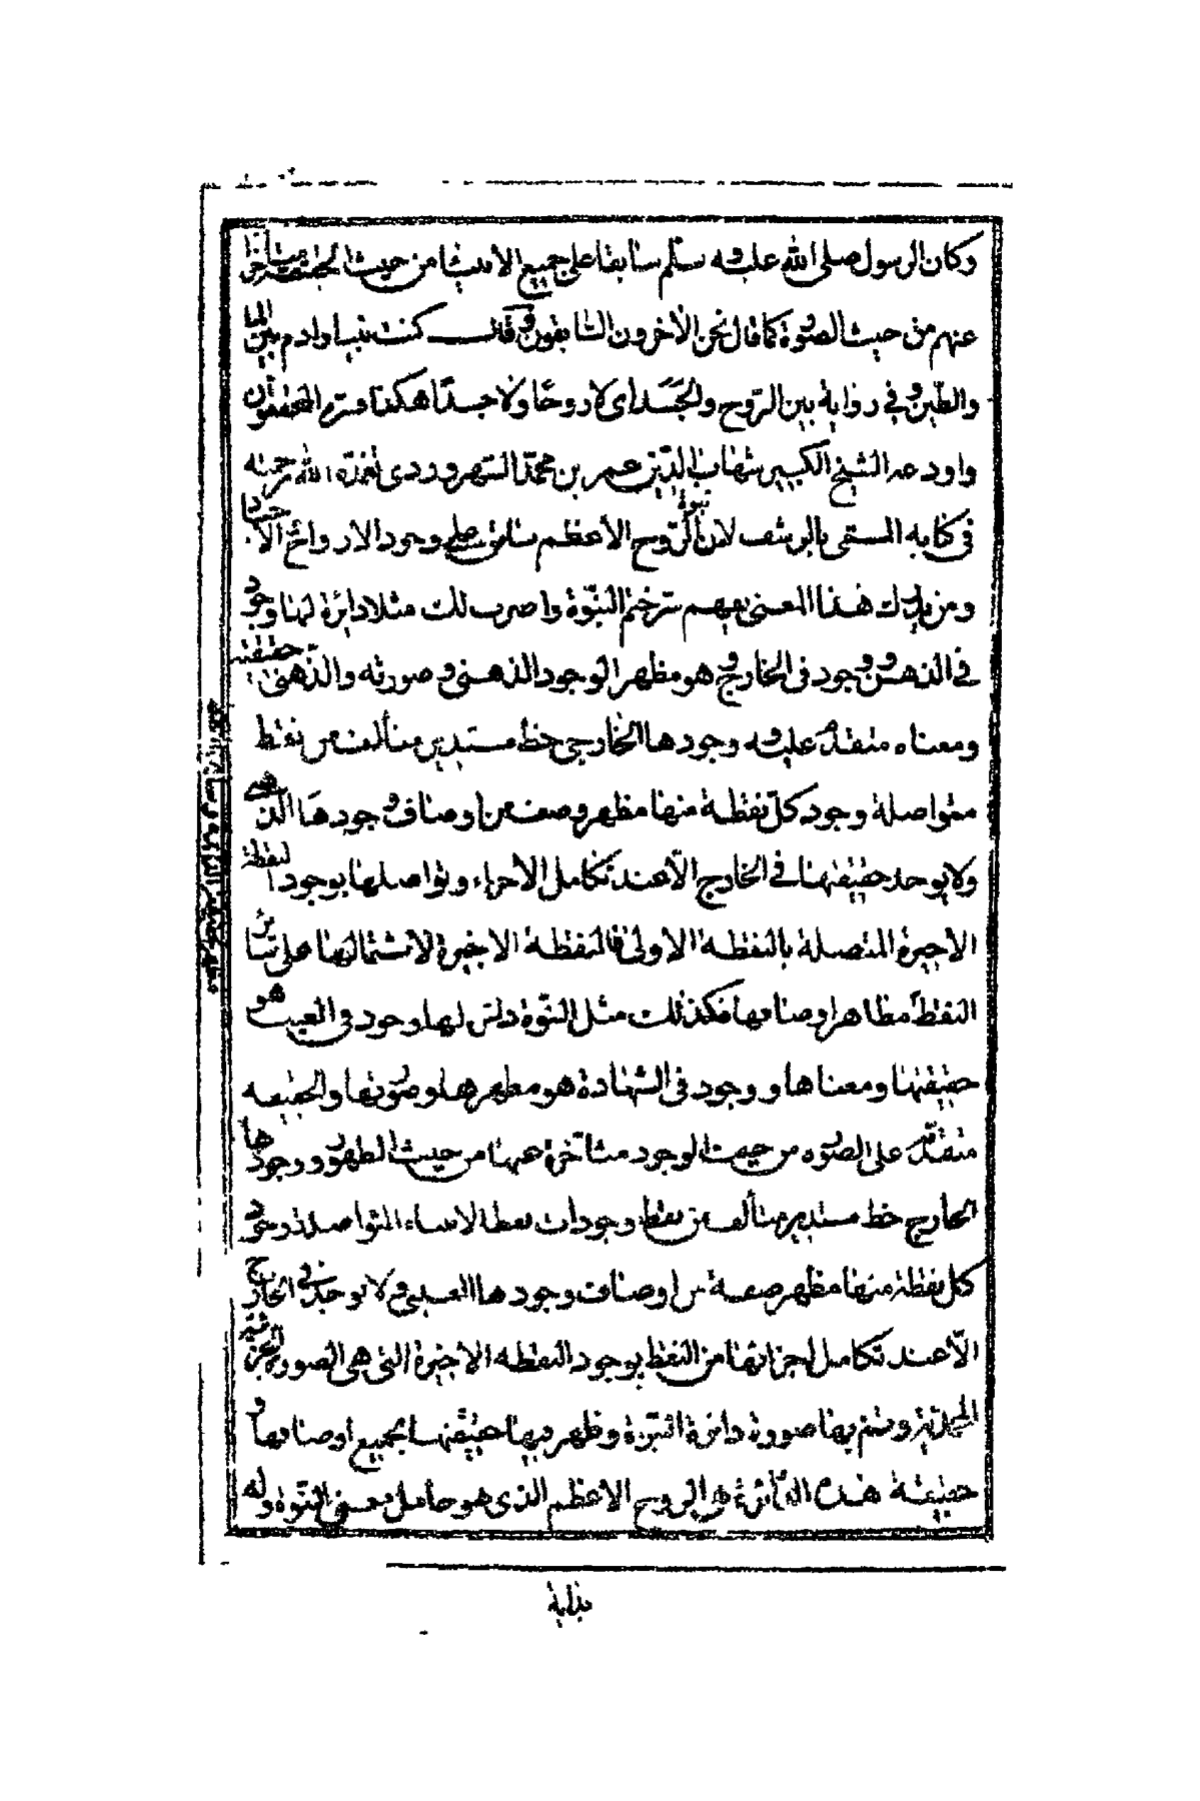 وكان الرسول صلى الله عليه وسلم سابقا على جميع الانبيا من حيث الحقيقة متأخرا
عنهم من حيث الصورة كما قال نحن الآخرون السابقون وقال كنت نبيا وادم بين الما
والطين وفي رواية بين الروح والجسد اى لا روحا ولا جسدا هكذا فسره المحققون
واودعه الشيخ الكبير شهاب الدين عمر بن محمد السهروردى تغمده الله برحمته
فى كتابه المسمى بالرشف لان نبوة الروح الأعظم سابق على وجود الارواح الاجساد
ومن يدرك هذا المعنى يفهم سر ختم النبوة واضرب لك مثلا دائرة لها وجود
في الذهن ووجود فى الخارج وهو مظهر الوجود الذهنى وصورته والذهنى حقيقته
ومعناه متقدم عليه ووجودها الخارجى خط مستدير متألف من نقط
متواصلة وجود كل نقطة منها مظهر وصف من اوصاف وجودها الذهنى
ولا يوجد حقيقتها في الخارج الا عند تكامل الأجزاء وتواصلها بوجود النقطة
الاخيرة المتصلة بالنقطة الاولى فالنقطة الاخيرة لاشتمالها على سائر
النقط مظاهر اوصافها فكذلك مثل النبوة دائرة لها وجود فى الغيب هو
حقيقتها ومعناها ووجود فى الشهادة هو مظهرها وصورتها والحقيقه
متقدمة على الصوره من حيث الوجود متأخرة عنها من حيث الظهور ووجودها
الخارجى خط مستدير متألف من نقط وجودات نقط الانبياء المتواصلة وجود
كل نقطة منها مظهر صفة من اوصاف وجودها الغيبى ولا توجد فى الخارج
الّا عند تكامل اجزائها من النقط بوجود النقطه الاخيرة التى هى الصورة
المحمدية وتتم بها صورة دائرة النبوة وظهر فيها حقيقتها بجميع اوصافها و
حقيقة هذه الدائرة هى الروح الاعظم الذى هو حامل معنى النبوة وله
بداية